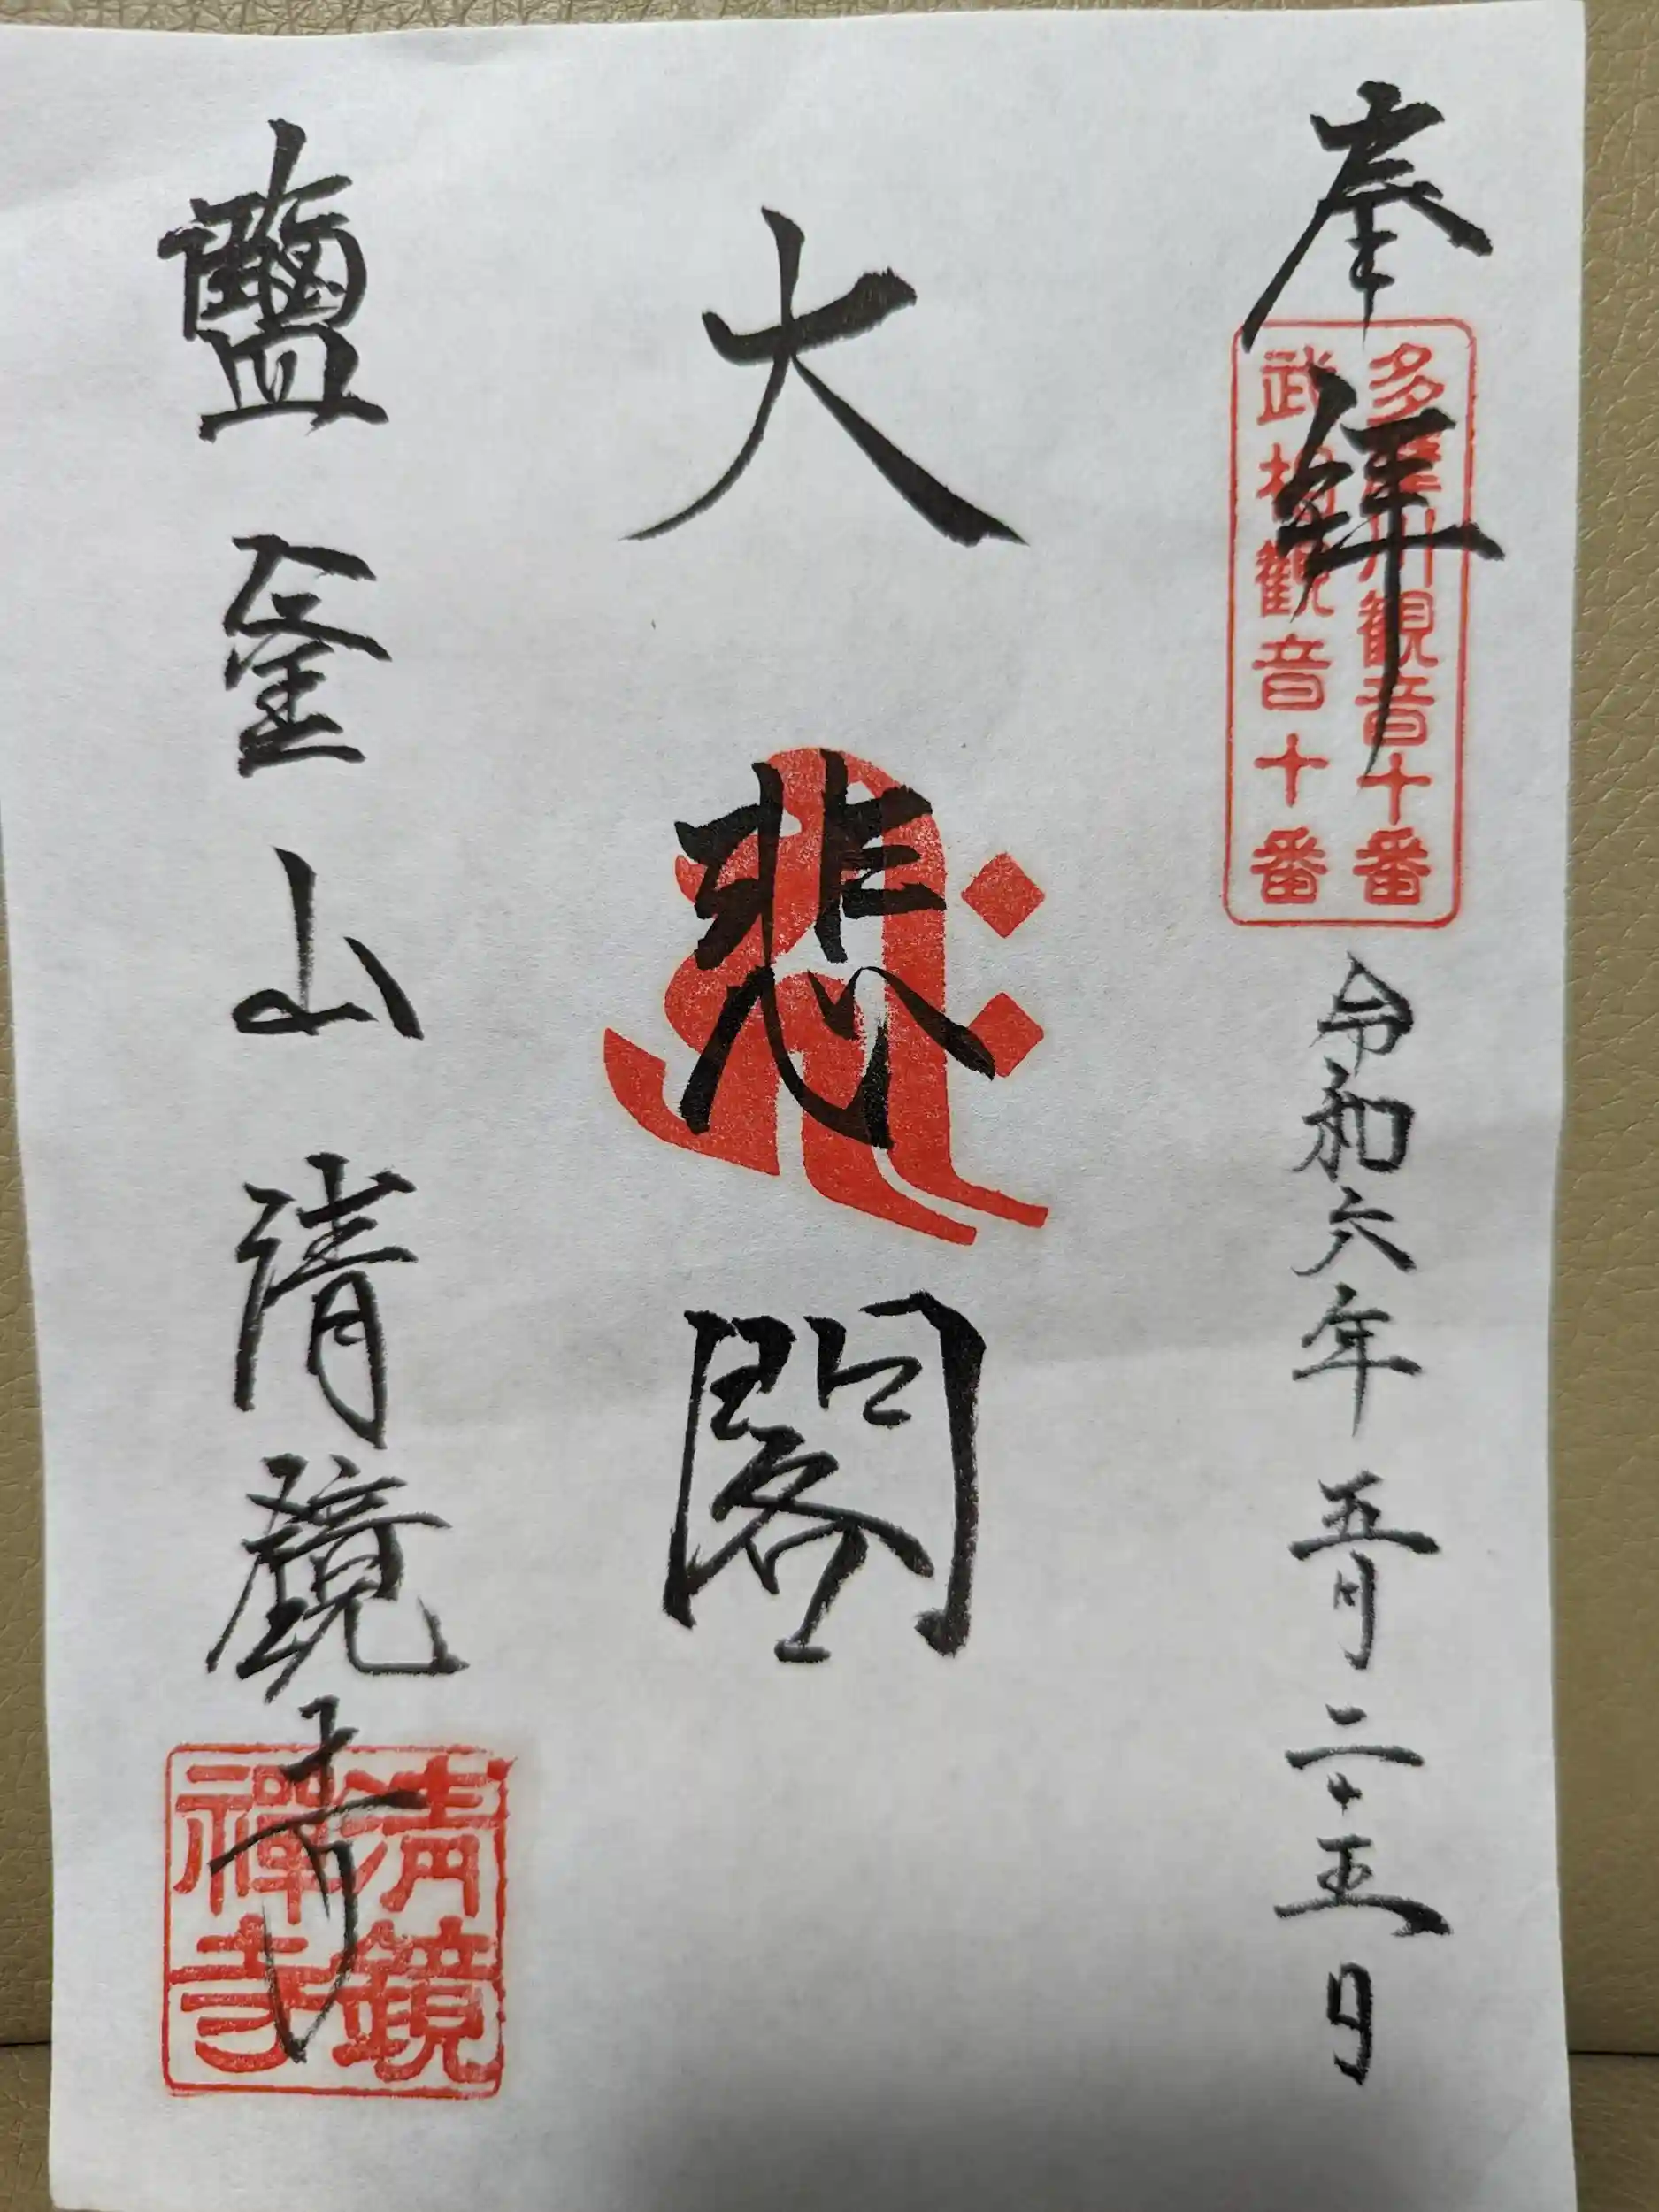 奉拝
多摩川観音十番
武相観音十番
令和六年五月二十五日
大悲閣
鹽釜山清鏡寺
清鏡
禅寺